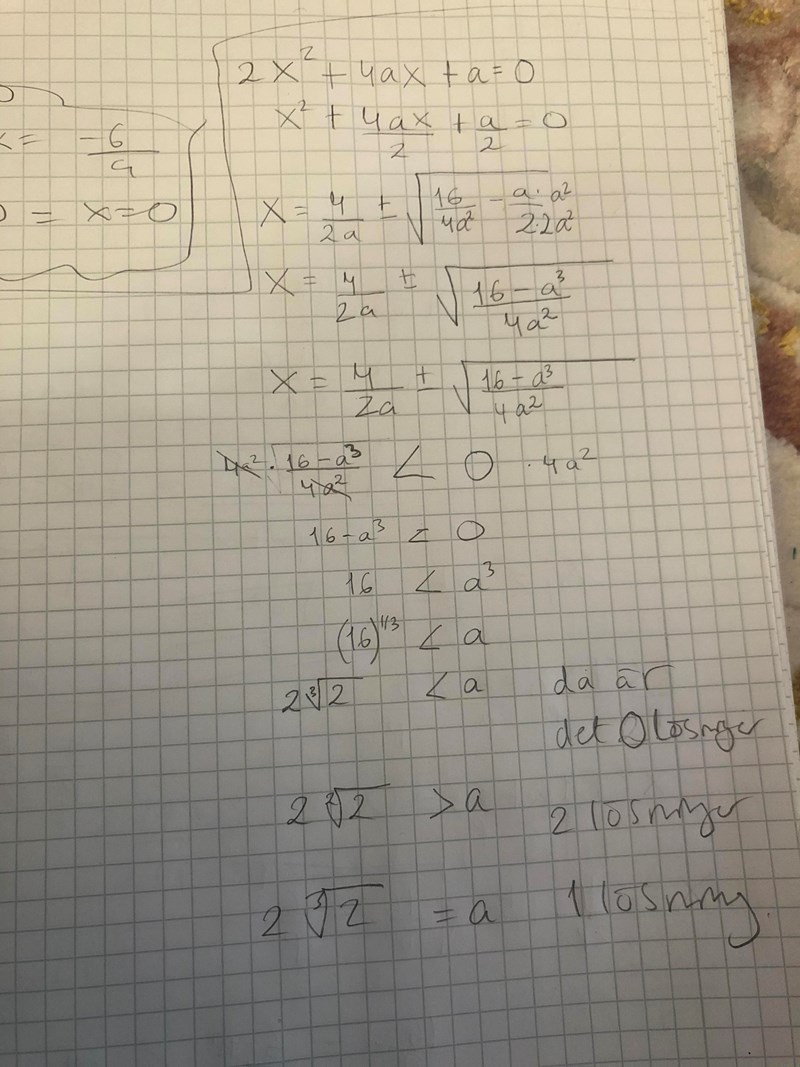 x = -6/a
0 = x=0
2x² + 4ax + a = 0
x² + 4ax/2 + a/2 = 0
x = 4/2a ± √(16/4a² - a·a²/2·2a²)
x = 4/2a ± √((16 - a³)/4a²)
x = 4/2a ± √((16 - a³)/4a²)
4a² · (16 - a³)/4a² < 0 · 4a²
16 - a³ < 0
16 < a³
(16)^1/3 < a
2∛2 < a då är
det 0 lösnger
2∛2 > a 2 lösninger
2∛2 = a 1 lösning.